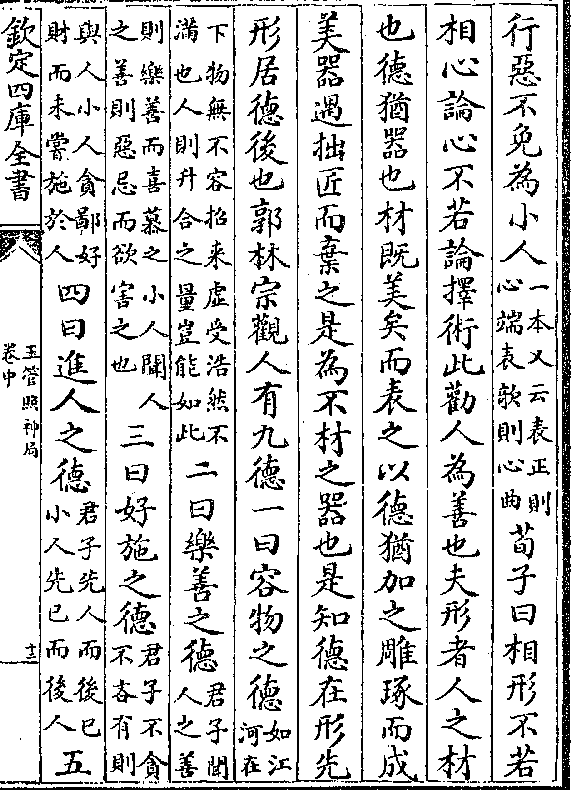 行惡不免為小人一本乂云表正則心端表欹則心曲荀子曰相形不若
相心論心不若論擇術此勸人為善也夫形者人之材
也德猶器也材既美矣而表之以德猶加之雕琢而成
美器遇拙匠而棄之是為不材之器也是知德在形先
形居德後也郭林宗觀人有九德一曰容物之德如江河在
下物無不容招来虛受浩然不滿也人則升合之量豈能如此二曰樂善之德君子聞人之善
則樂善而喜慕之小人聞人之善則惡忌而欲害之也三曰好施之德君子不貪不吝有則
與人小人貪鄙好財而未嘗施於人四曰進人之德君子先人而後已小人先已而後人五
欽定四庫全書
玉管照神局
卷中